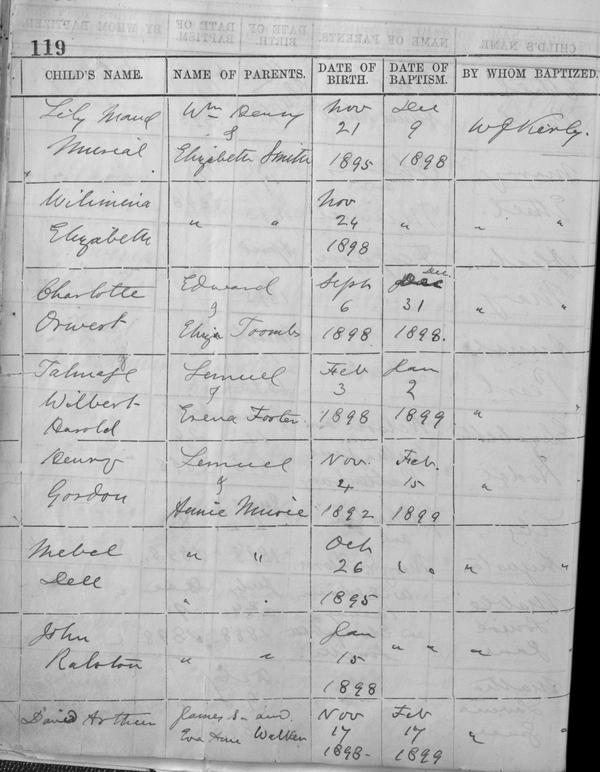 119
CHILD'S NAME. NAME OF PARENTS. DATE OF BIRTH. DATE OF BAPTISM. BY WHOM BAPTIZED.
Lily Maud Wm Henry Nov Dec
& 21 9 W J Kirby.
Murial Elizabeth Smith 1895 1898
Wilimina Nov
" " 24 " " "
Elizabeth 1898
Charlotte Edward Sept Dec.
& 6 31 " "
Orwest Eliza Toombs 1898 1898.
Talmage Lemuel Feb Jan
Wilbert & 3 2
Harold Erena Foster. 1898 1899 "
Henry Lemuel Nov. Feb.
& 4 15 "
Gordon Annie 1892 1899
Mebel " " Oct
Dell 26 " " " "
" . 1895
John Jan
Ralston " " 15 " " " "
1898
David Arthur James S. and Nov Feb
Eva Ann Walker 17 17 "
1898- 1899